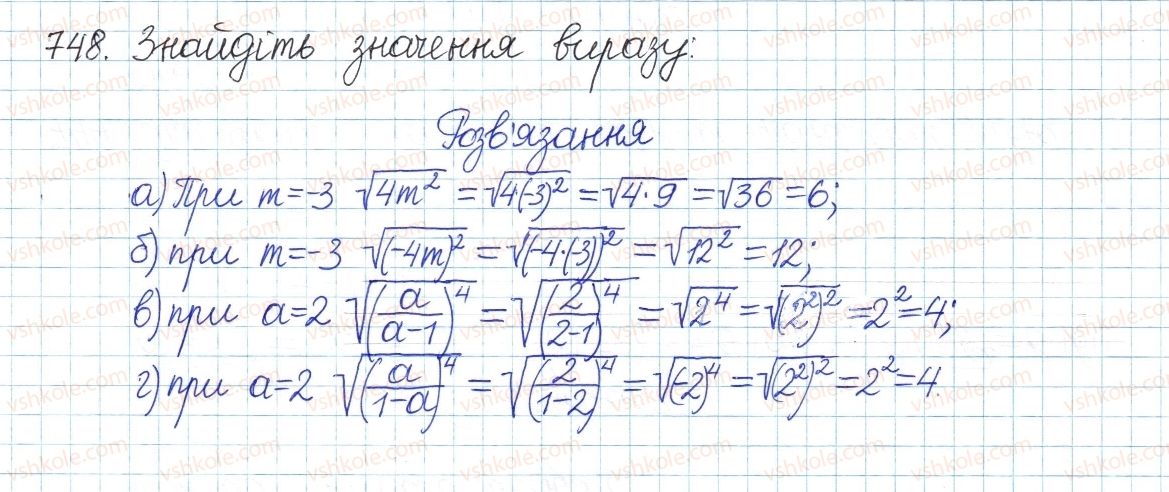 748. Знайдіть значення виразу:
Розв'язання
а) При m=-3 √(4m²) = √(4(-3)²) = √(4·9) = √36 = 6;
б) при m=-3 √((-4m)²) = √((-4·(-3))²) = √(12²) = 12;
в) при a=2 √((a/(a-1))⁴) = √((2/(2-1))⁴) = √(2⁴) = √((2²)²) = 2² = 4;
г) при a=2 √((a/(1-a))⁴) = √((2/(1-2))⁴) = √((-2)⁴) = √((2²)²) = 2² = 4.